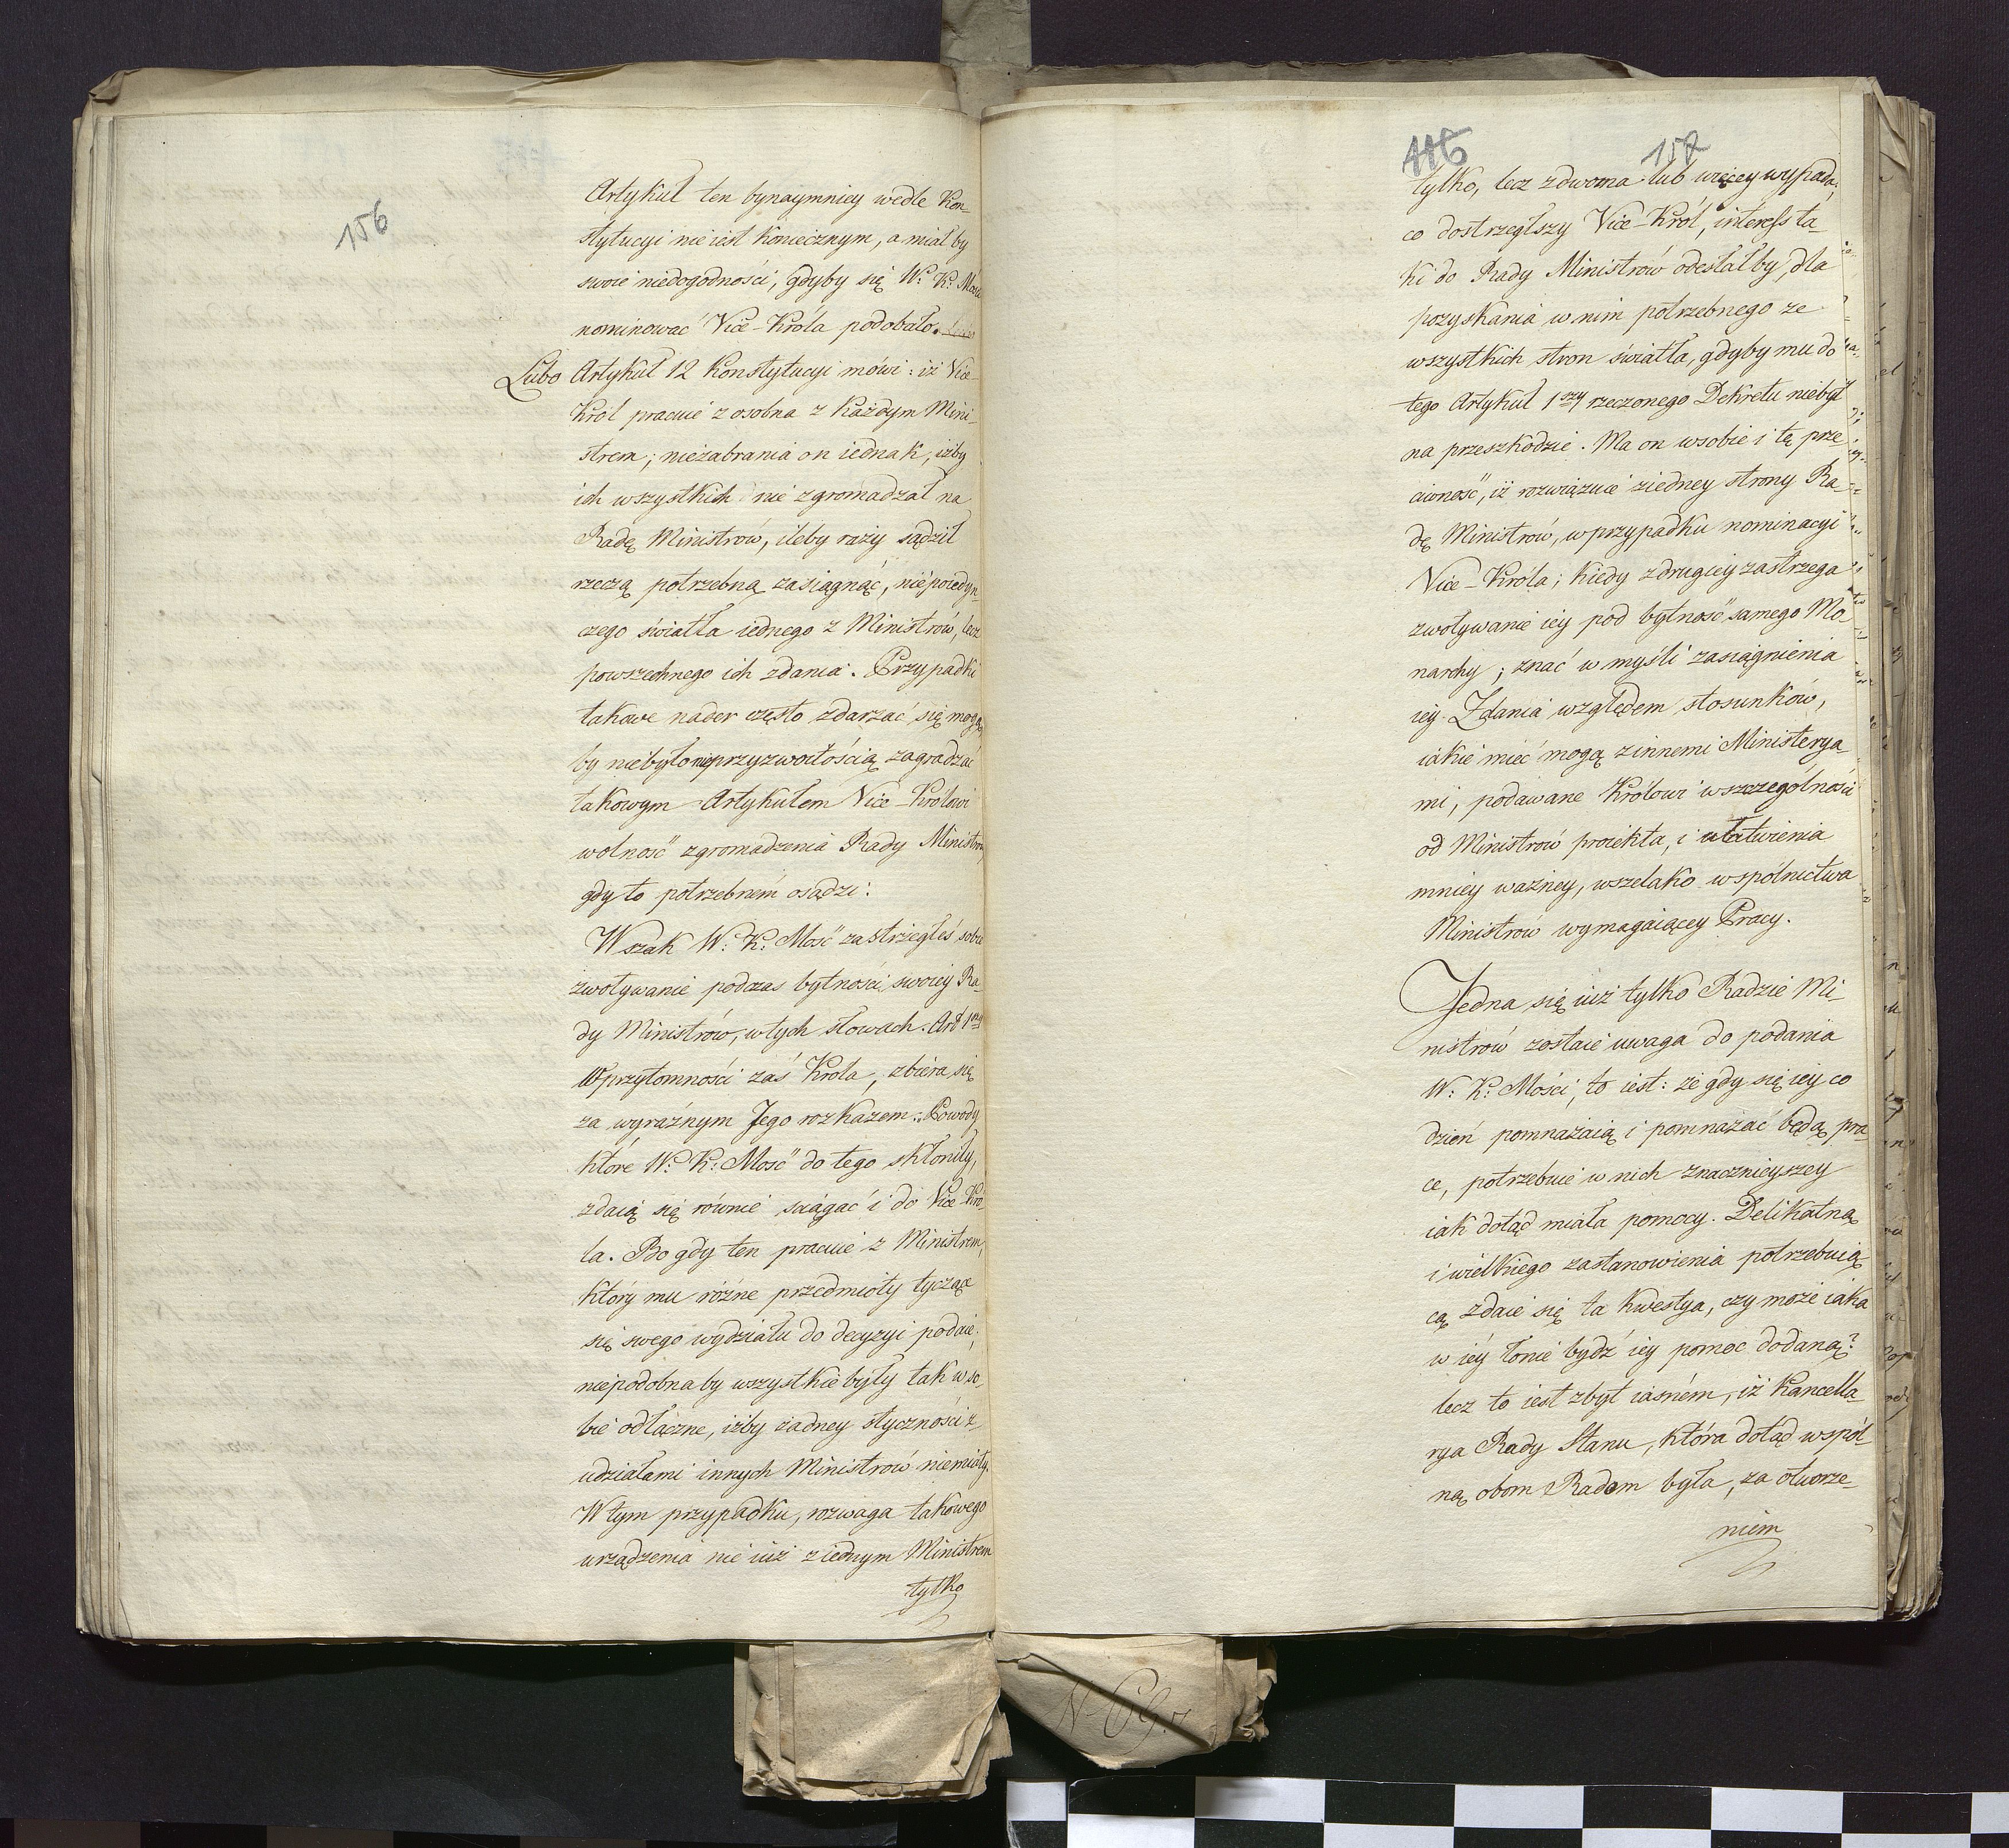 156
Artykuł ten bynaymniey wedle Kon-
stytucyi nie iest koniecznym, a miałby
swoie niedogodności, gdyby się W: K: Mości
nominować Vice-Króla podobało.
Lubo Artykuł 12 Konstytucyi mówi: iż Vice-
Król pracuie z osobna z każdym Mini-
strem; niezabrania on iednak, iżby
ich wszystkich nie zgromadzał na
Radę Ministrów, ileby razy sądził
rzeczą potrzebną zasiągnąć, niepoiedyn-
czego światła iednego z Ministrów, lecz
powszechnego ich zdania. Przypadki
takowe nader często zdarzać się mogą,
by niebyło nieprzyzwoitością zagradzać
takowym Artykułem Vice-Królowi
wolność zgromadzenia Rady Ministrów
gdy to potrzebném osądzi:
Wszak W: K: Mość zastrzegłeś sobie
zwoływanie podczas bytności swoiey Ra-
dy Ministrów, w tych słowach. Art 1szy
W przytomności zaś Króla, zbiera się
za wyraźnym Jego rozkazem: Powody
które W: K: Mość do tego skłoniły,
zdaią się równie sciągać i do Vice-Kró-
la. Bo gdy ten pracuie z Ministrem,
który mu różne przedmioty tyczące
się swego wydziału do decyzyi podaie,
niepodobna by wszystkie były tak w so-
bie odłączne, iżby żadney styczności z
udziałami innych Ministrów niemiały.
W tym przypadku, rozwaga takowego
urządzenia nie iuż z iednym Ministrem
tylko
116 157
tylko, lecz z dwoma lub więcey wypada,
co dostrzegłszy Vice-Król, interess ta-
ki do Rady Ministrów odesłałby, dla
pozyskania w nim potrzebnego ze
wszystkich stron światła, gdyby mu do
tego Artykuł 1szy rzeczonego Dekretu niebył
na przeszkodzie. Ma on w sobie i tę prze
ciwność, iż rozwiązuie z iedney strony Ra-
dę Ministrów, w przypadku nominacyi
Vice-Króla; kiedy z drugiey zastrzega
zwoływanie iey pod bytność samego Mo-
narchy; znać w myśli zasiągnienia
iey Zdania względem stosunków,
iakie mieć mogą z innemi Ministerya-
mi, podawane Królowi w szczególności
od Ministrów proiekta, i ułatwienia
mniey ważney, wszelako wspólnictwa
Ministrów wymagaiącey Pracy.
Jedna się iuż tylko Radzie Mi-
nistrów zostaie uwaga do podania
W: K: Mości, to iest: że gdy się iey co
dzień pomnażaią i pomnażać będą pra-
ce, potrzebuie w nich znacznieyszey
iak dotąd miała pomocy. Delikatną
i wielkiego zastanowienia potrzebuią
cą zdaie się ta kwestya, czy może iaka
w iéy łonie bydź iey pomoc dodaną?
lecz to iest zbyt iasném, iż Kancella-
rya Rady Stanu, która dotąd wspól-
ną obom Radom była, za otworze-
niem
N. 69.